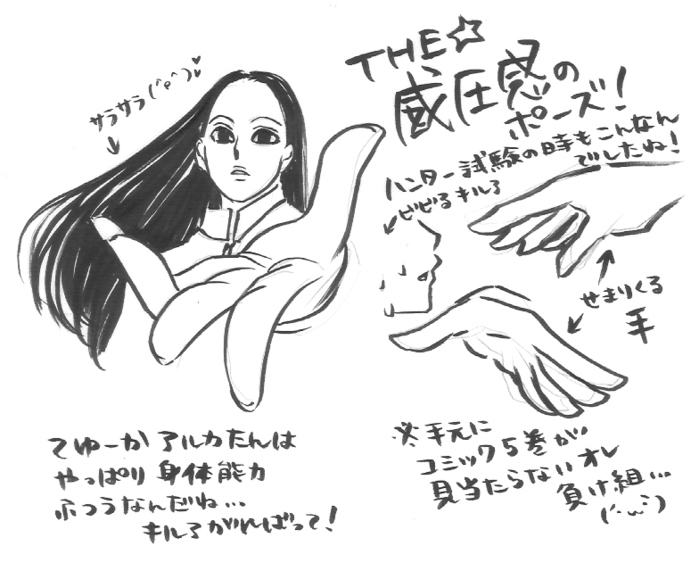 サラサラ(°▽^)♥
THE☆
威圧感の
ポーズ!
ハンター試験の時もこんなん
でしたね!
ビビるキルア
せまりくる
手
てゆーか アルカたんは
やっぱり 身体能力
ふつうなんだね…
キルアがんばって!
※手元に
コミック5巻が
見当たらないオレ
負け組…
(´・ω・`)